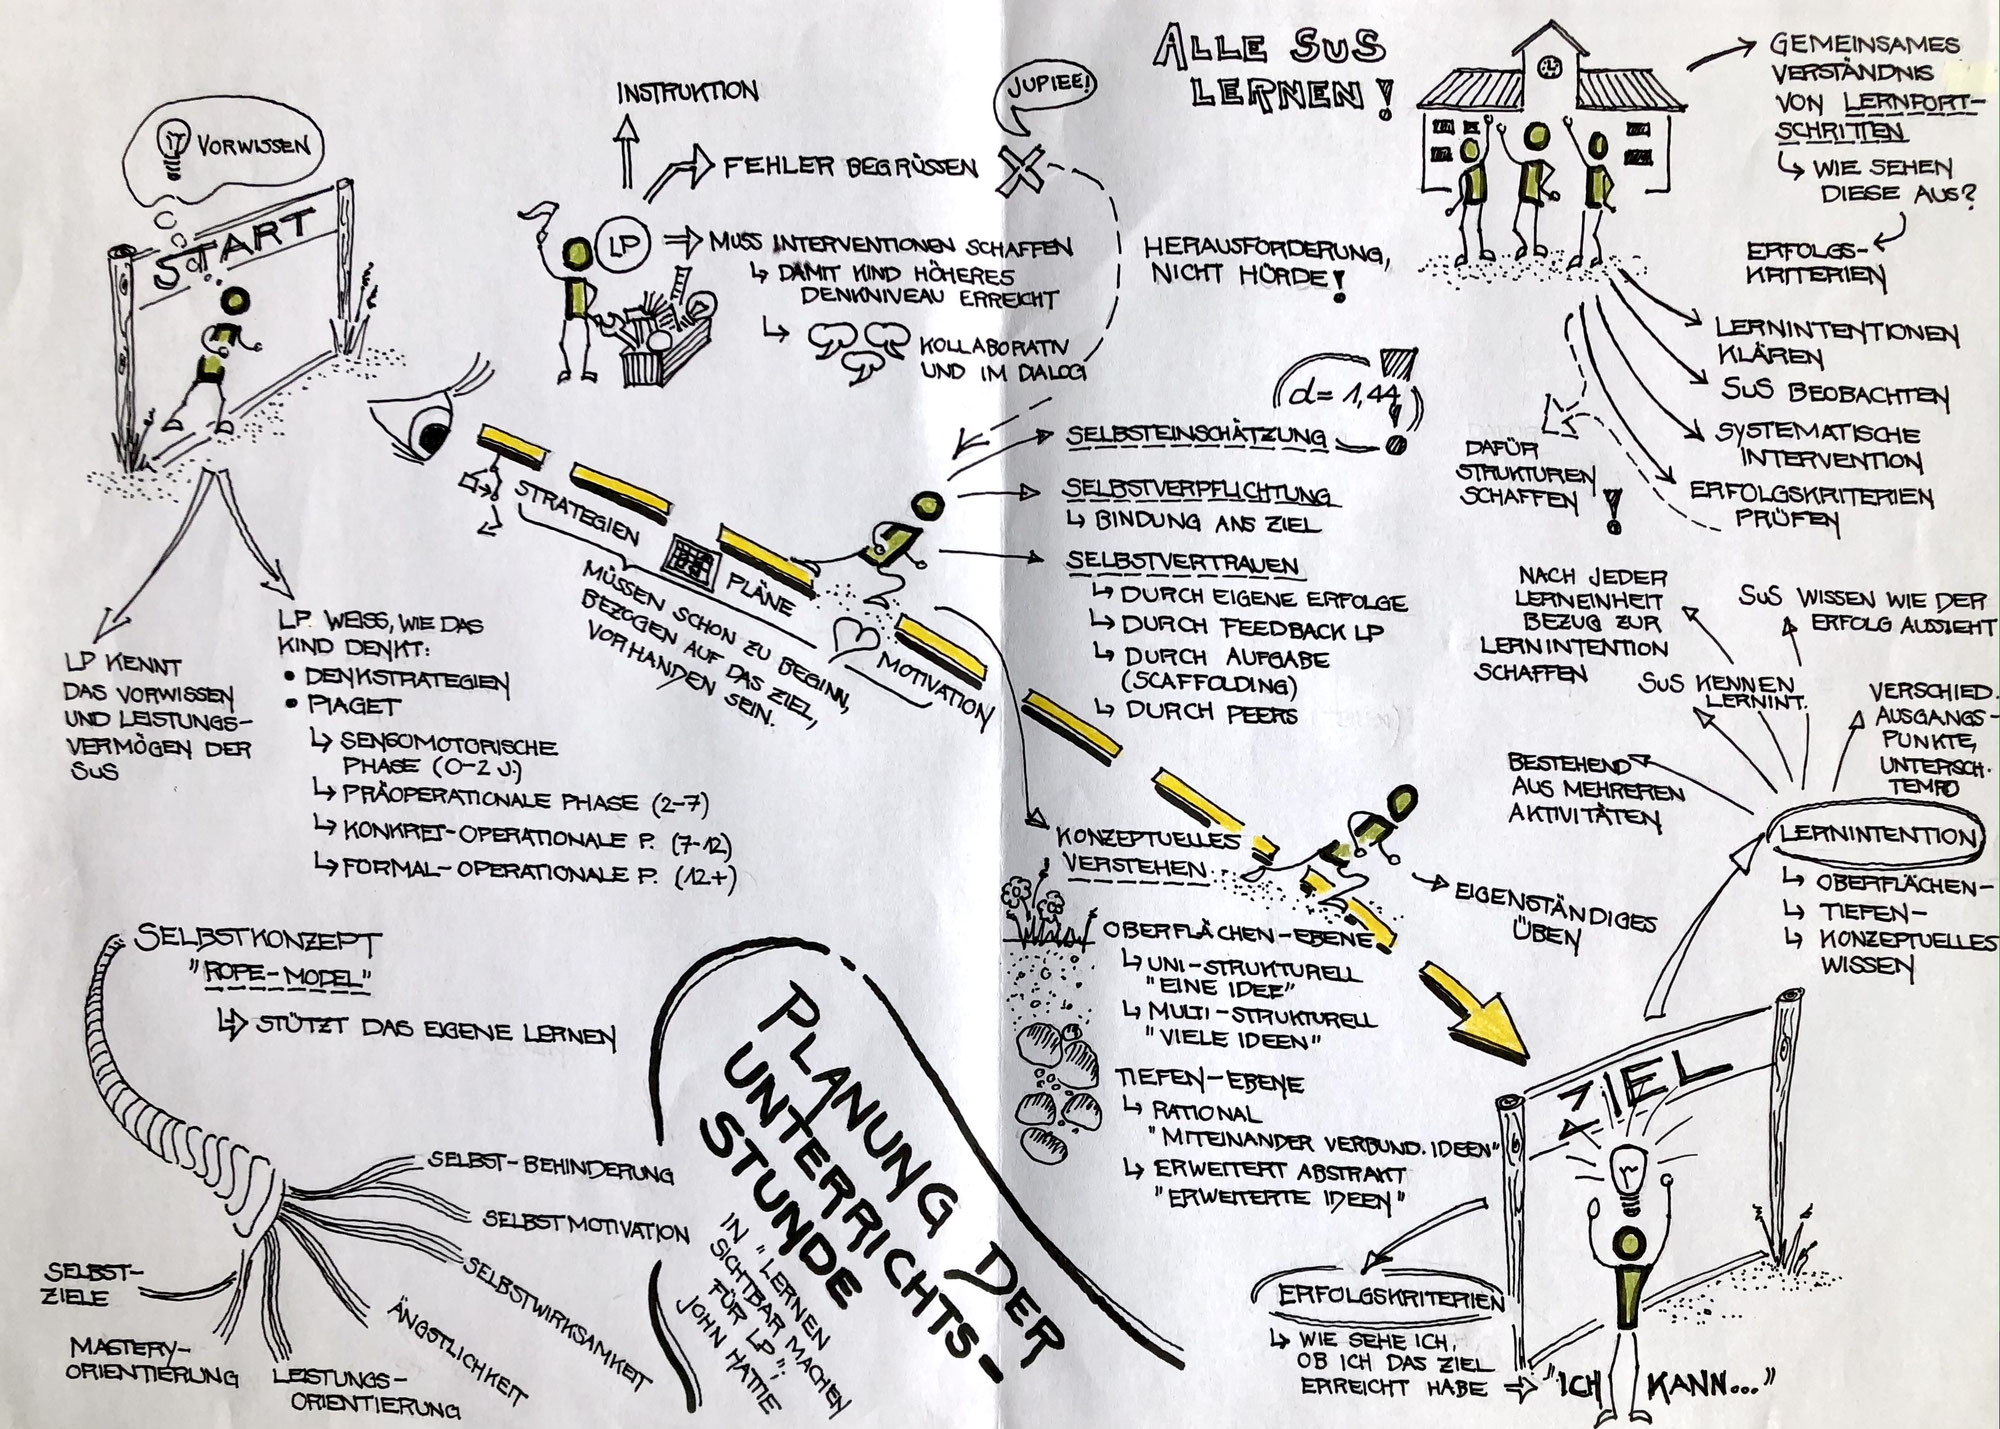 VORWISSEN
START
LP KENNT
DAS VORWISSEN
UND LEISTUNGS-
VERMÖGEN DER
SUS
LP WEISS, WIE DAS
KIND DENKT:
• DENKSTRATEGIEN
• PIAGET
↳ SENSOMOTORISCHE
PHASE (0-2 J.)
↳ PRÄOPERATIONALE PHASE (2-7)
↳ KONKRET-OPERATIONALE P. (7-12)
↳ FORMAL-OPERATIONALE P. (12+)
INSTRUKTION
FEHLER BEGRÜSSEN
JUPIEE!
LP
MUSS INTERVENTIONEN SCHAFFEN
↳ DAMIT KIND HÖHERES
DENKNIVEAU ERREICHT
↳ KOLLABORATIV
UND IM DIALOG
ALLE SUS
LERNEN!
HERAUSFORDERUNG,
NICHT HÜRDE!
GEMEINSAMES
VERSTÄNDNIS
VON LERNFORT-
SCHRITTEN
↳ WIE SEHEN
DIESE AUS?
ERFOLGS-
KRITERIEN
LERNINTENTIONEN
KLÄREN
SUS BEOBACHTEN
SYSTEMATISCHE
INTERVENTION
ERFOLGSKRITERIEN
PRÜFEN
DAFÜR
STRUKTUREN
SCHAFFEN!
STRATEGIEN
PLÄNE
MOTIVATION
MÜSSEN SCHON ZU BEGINN,
BEZOGEN AUF DAS ZIEL,
VORHANDEN SEIN.
(d = 1,44)
SELBSTEINSCHÄTZUNG
SELBSTVERPFLICHTUNG
↳ BINDUNG ANS ZIEL
SELBSTVERTRAUEN
↳ DURCH EIGENE ERFOLGE
↳ DURCH FEEDBACK LP
↳ DURCH AUFGABE
(SCAFFOLDING)
↳ DURCH PEERS
KONZEPTUELLES
VERSTEHEN
OBERFLÄCHEN-EBENE
↳ UNI-STRUKTURELL
"EINE IDEE"
↳ MULTI-STRUKTURELL
"VIELE IDEEN"
TIEFEN-EBENE
↳ RATIONAL
"MITEINANDER VERBUND. IDEEN"
↳ ERWEITERT ABSTRAKT
"ERWEITERTE IDEEN"
EIGENSTÄNDIGES
ÜBEN
NACH JEDER
LERNEINHEIT
BEZUG ZUR
LERNINTENTION
SCHAFFEN
SUS WISSEN WIE DER
ERFOLG AUSSIEHT
SUS KENNEN
LERNINT.
VERSCHIED.
AUSGANGS-
PUNKTE,
UNTERSCH.
TEMPO
BESTEHEND
AUS MEHREREN
AKTIVITÄTEN
LERNINTENTION
↳ OBERFLÄCHEN-
↳ TIEFEN-
↳ KONZEPTUELLES
WISSEN
ZIEL
ERFOLGSKRITERIEN
↳ WIE SEHE ICH,
OB ICH DAS ZIEL
ERREICHT HABE ⇒ "ICH KANN..."
SELBSTKONZEPT
"ROPE-MODEL"
↳ STÜTZT DAS EIGENE LERNEN
SELBST-BEHINDERUNG
SELBSTMOTIVATION
SELBSTWIRKSAMKEIT
ÄNGSTLICHKEIT
LEISTUNGS-
ORIENTIERUNG
MASTERY-
ORIENTIERUNG
SELBST-
ZIELE
PLANUNG DER
UNTERRICHTS-
STUNDE
IN "LERNEN
SICHTBAR MACHEN
FÜR LP";
JOHN HATTIE